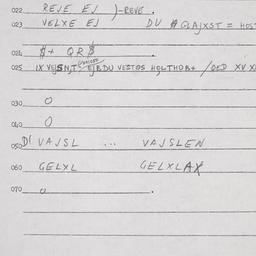 022 REJE EJ )-REVE.
023 VELXE EJ DU # GLAJXST = HOS
024 $+ QR$
025 IX VEJSNJT EJBDU VESTOS HQLTHOB+ /OED XV X
030 0
040 0
050 D1 VAJSL ... VAJSLEN
060 GELXL GELXLAX
070 0